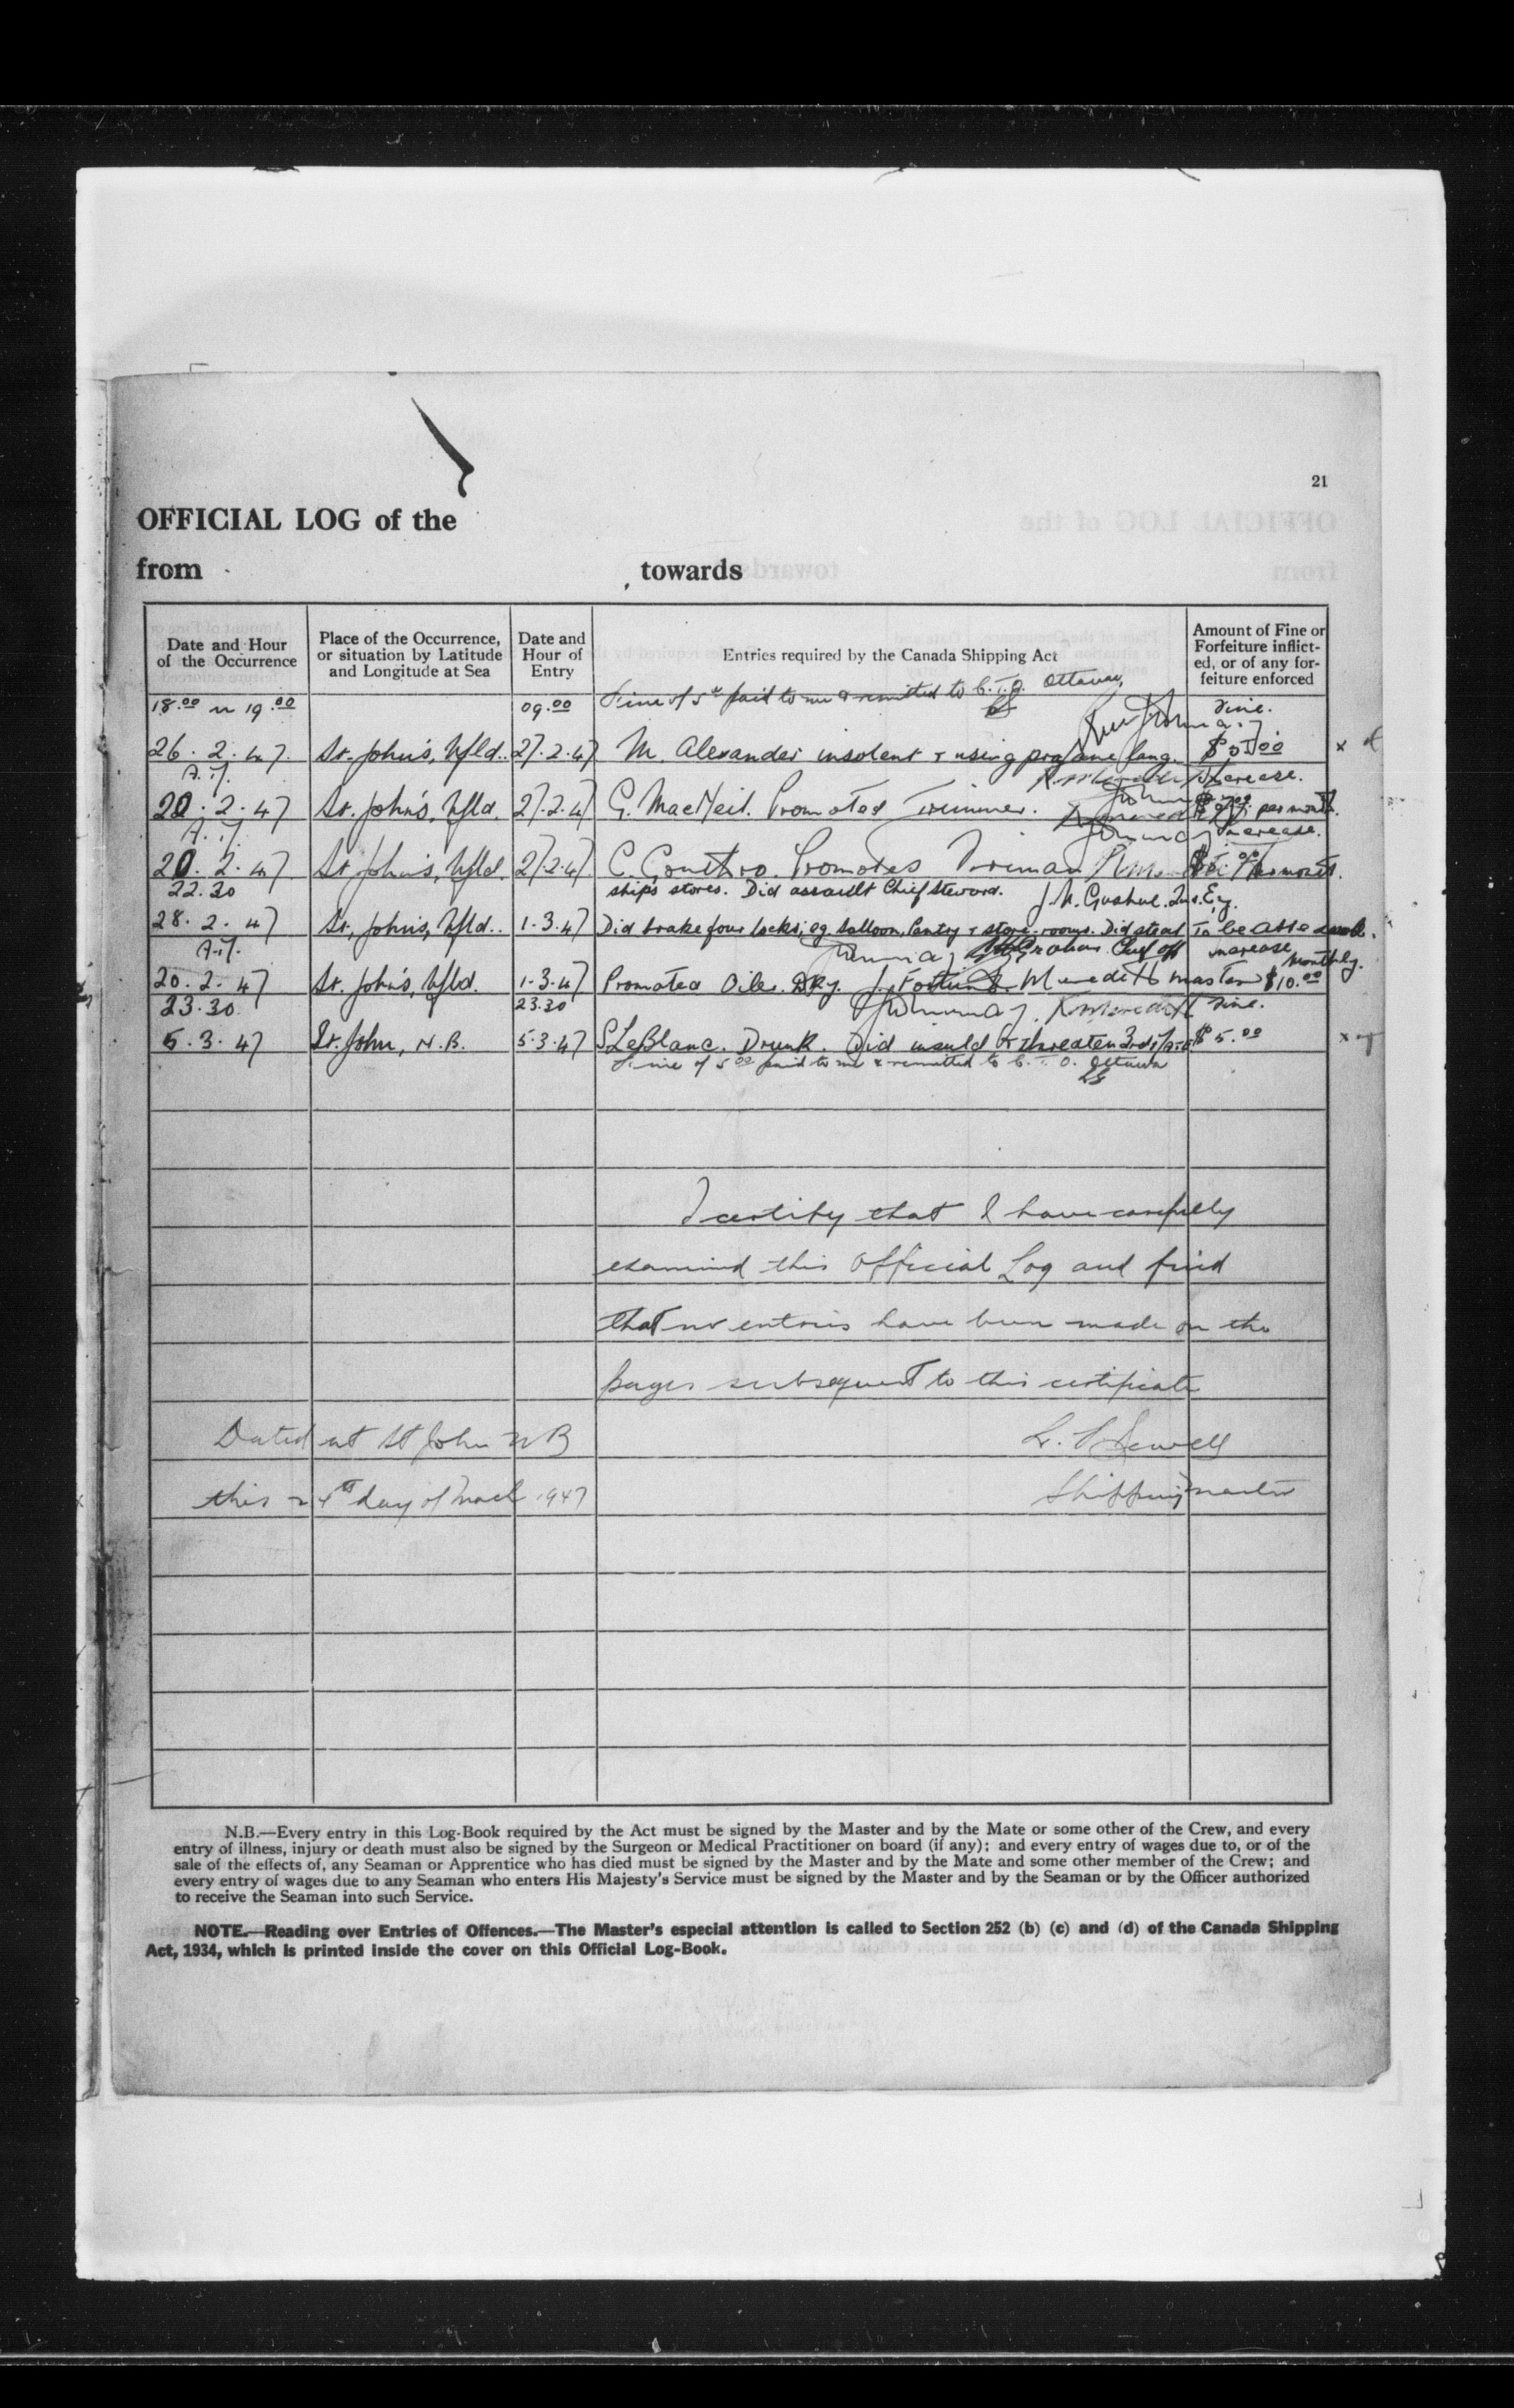 21
OFFICIAL LOG of the
from towards
Date and Hour of the Occurrence
Place of the Occurrence, or situation by Latitude and Longitude at Sea
Date and Hour of Entry
Entries required by the Canada Shipping Act
Amount of Fine or Forfeiture inflicted, or of any forfeiture enforced
18.00 19.00 09.00 Fine of 5.00 paid to me & remitted to C.T.O. Ottawa Fine.
26.2.47. St. John's, Nfld.. 27.2.47 M. Alexander insolent & using profane lang. $ 5.00
increase.
20.2.47 St. John's, Nfld. 27.2.47 G. MacNeil. Promoted Trimmer. per month.
increase.
20.2.47 St. John's, Nfld. 27.2.47 C. Promoted Fireman per month.
22.30 ships stores. Did assault Chief Steward.
28.2.47 St, John's, Nfld.. 1.3.47 Did brake four locks; eg. Salloon, Pantry & store-rooms. Did steal To be
Chief off increase, monthly.
20.2.47 St. John's, Nfld. 1.3.47 Promoted Oiler. DKy. J. Fortune Meredith master $10.00
23.30 23.30 Fine.
5.3.47 St. John, N.B. 5.3.47 S LeBlanc. Drunk. Did insuld & threaten 3rd $ 5.00
Fine of 5.00 paid to me & remitted to C.T.O. Ottawa
I certify that I have carefully
examined this Official Log and find
that no entries have been made on the
pages subsequent to this certificate
Dated at St John NB
this 24th day of March 1947 Shipping master
N.B.—Every entry in this Log-Book required by the Act must be signed by the Master and by the Mate or some other of the Crew, and every
entry of illness, injury or death must also be signed by the Surgeon or Medical Practitioner on board (if any); and every entry of wages due to, or of the
sale of the effects of, any Seaman or Apprentice who has died must be signed by the Master and by the Mate and some other member of the Crew; and
every entry of wages due to any Seaman who enters His Majesty's Service must be signed by the Master and by the Seaman or by the Officer authorized
to receive the Seaman into such Service.
NOTE.—Reading over Entries of Offences.—The Master's especial attention is called to Section 252 (b) (c) and (d) of the Canada Shipping
Act, 1934, which is printed inside the cover on this Official Log-Book.